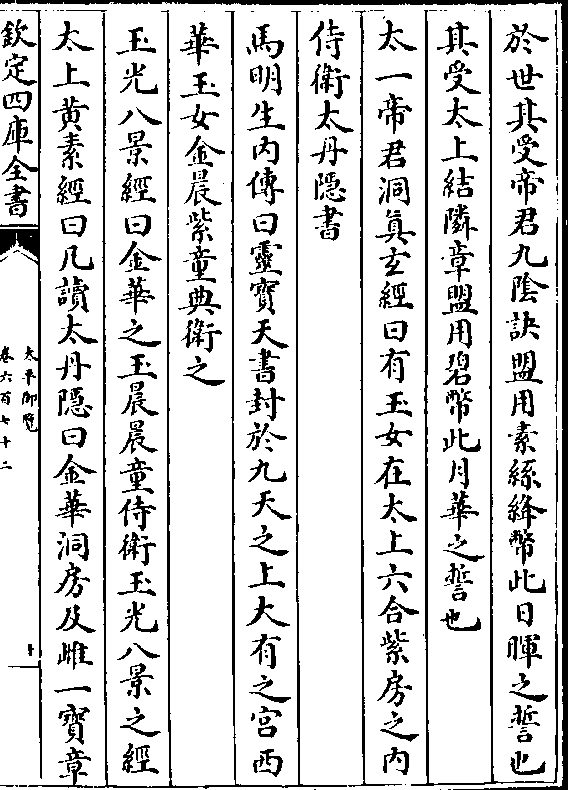 於世其受帝君九隂訣盟用素絲絳幣此日暉之誓也
其受太上結隣章盟用碧幣此月華之誓也
太一帝君洞真玄經曰有玉女在太上六合紫房之内
侍衛太丹隱書
馬明生内傳曰靈寶天書封於九天之上大有之宫西
華玉女金晨紫童典衛之
玉光八景經曰金華之玉晨晨童侍衛玉光八景之經
太上黄素經曰凡讀太丹隱曰金華洞房及雌一寶章
欽定四庫全書
太平御覽
卷六百七十二
十